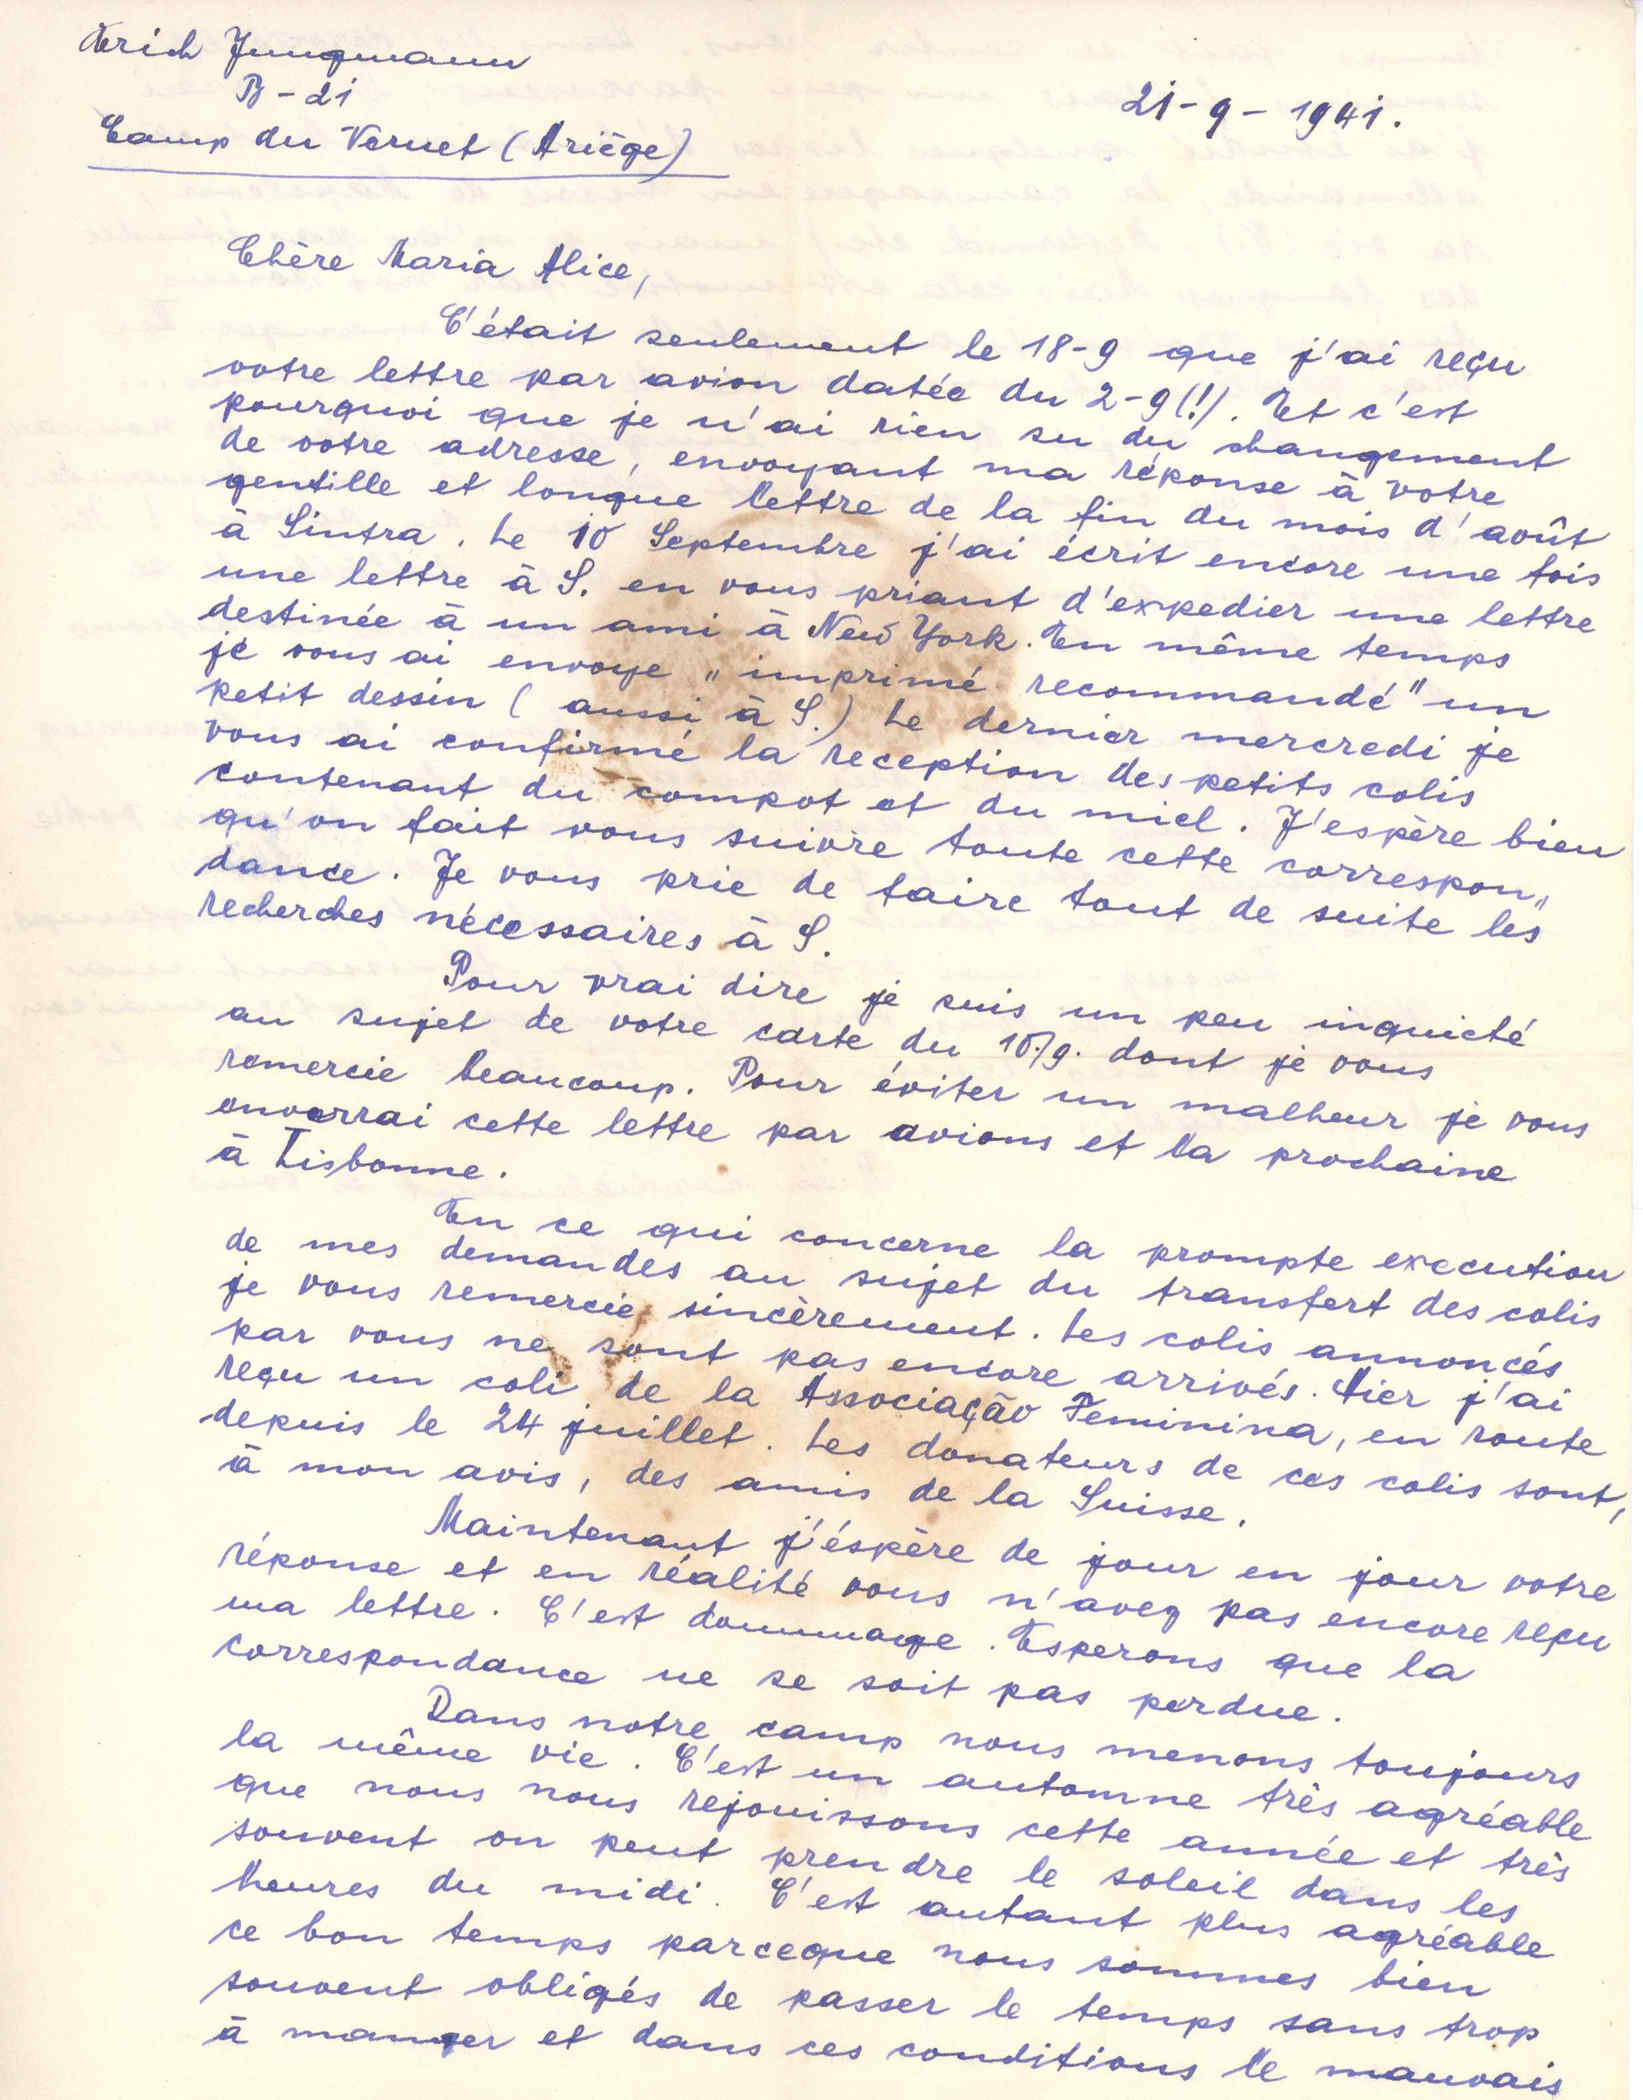 Erich Jungmann
B - 21
Camp du Vernet (Ariège)
21-9-1941.
Chère Maria Alice,
C'était seulement le 18-9 que j'ai reçu
votre lettre par avion datée du 2-9(!). Et c'est
pourquoi que je n'ai rien su du changement
de votre adresse, envoyant ma réponse à votre
gentille et longue lettre de la fin du mois d'août
à Sintra. Le 10 Septembre j'ai écrit encore une fois
une lettre à S. en vous priant d'expedier une lettre
destinée à un ami à New York. En même temps
je vous ai envoye „imprimé recommandé" un
petit dessin (aussi à S.) Le dernier mercredi je
vous ai confirmé la reception des petits colis
contenant du compot et du miel. J'espère bien
qu'on fait vous suivre toute cette correspon„
dance. Je vous prie de faire tout de suite les
recherches nécessaires à S.
Pour vrai dire je suis un peu inquieté
au sujet de votre carte du 10/9. dont je vous
remercie beaucoup. Pour éviter un malheur je vous
enverrai cette lettre par avions et la prochaine
à Lisbonne.
En ce qui concerne la prompte execution
de mes demandes au sujet du transfert des colis
je vous remercie sincèrement. Les colis annoncés
par vous ne sont pas encore arrivés. Hier j'ai
reçu un coli de la Associação Feminina, en route
depuis le 24 juillet. Les donateurs de ces colis sont,
à mon avis, des amis de la Suisse.
Maintenant j'éspère de jour en jour votre
réponse et en réalité vous n'avez pas encore reçu
ma lettre. C'est dommage. Esperons que la
correspondance ne se soit pas perdue.
Dans notre camp nous menons toujours
la même vie. C'est un automne très agréable
que nous nous rejouissons cette année et très
souvent on peut prendre le soleil dans les
heures du midi. C'est autant plus agréable
ce bon temps parceque nous sommes bien
souvent obligés de passer le temps sans trop
à manger et dans ces conditions le mauvais